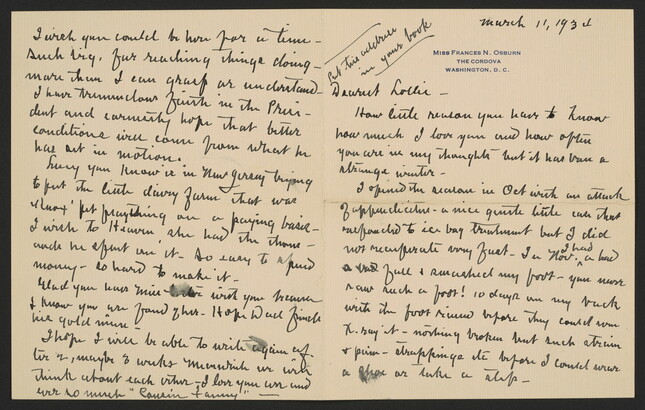 March 11, 1934
Put this address
in your book
MISS FRANCES N. OSBURN
THE CORDOVA
WASHINGTON, D. C.
Dearest Lollie -
How little reason you have to know
how much I love you and how often
you are in my thoughts but it has been a
strange winter -
I opened the season in Oct with an attack
of appendicitis - a nice quiet little case that
responded to ice bag treatment but I did
not recuperate very fast - In Nov. I had a bad
fall & smashed my foot - you never
saw such a foot! 10 days on my back
with the foot raised before they could even
X. ray it - nothing broken but such strain
& pain - strappings etc before I could wear
a shoe or take a step -
I wish you could be here for a time -
Such big, far reaching things doing -
more than I can grasp or understand -
I have tremendous faith in the Presi-
dent and earnestly hope that better
conditions will come from what he
has set in motion.
Lucy you know is in New Jersey trying
to put the little dairy farm that was
Knox' pet plaything on a paying basis -
I wish to Heaven she had the thous-
ands he spent on it - So easy to spend
money - so hard to make it -
Glad you have Mini with you because
I know you are fond of her - Hope Dad finds
his gold mine
I hope I will be able to write again af-
ter 2, maybe 3 weeks Meanwhile we will
think about each other - I love you over and
ever so much "Cousin Fanny" -